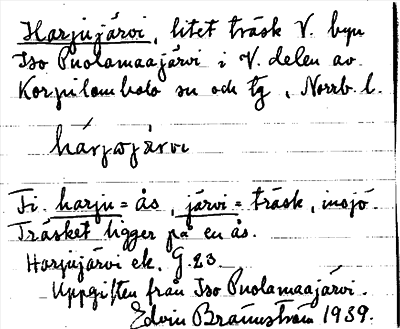 Harjujärvi, litet träsk V. byn
Iso Puolamaajärvi i V. delen av
Korpilombolo sn och tg, Norrb. l.
hárjωjärvi
Fi. harju = ås, järvi = träsk, insjö.
Träsket ligger på en ås.
Harjujärvi ek. G.23
Uppgiften från Iso Puolamaajärvi.
Edvin Brännström 1939.